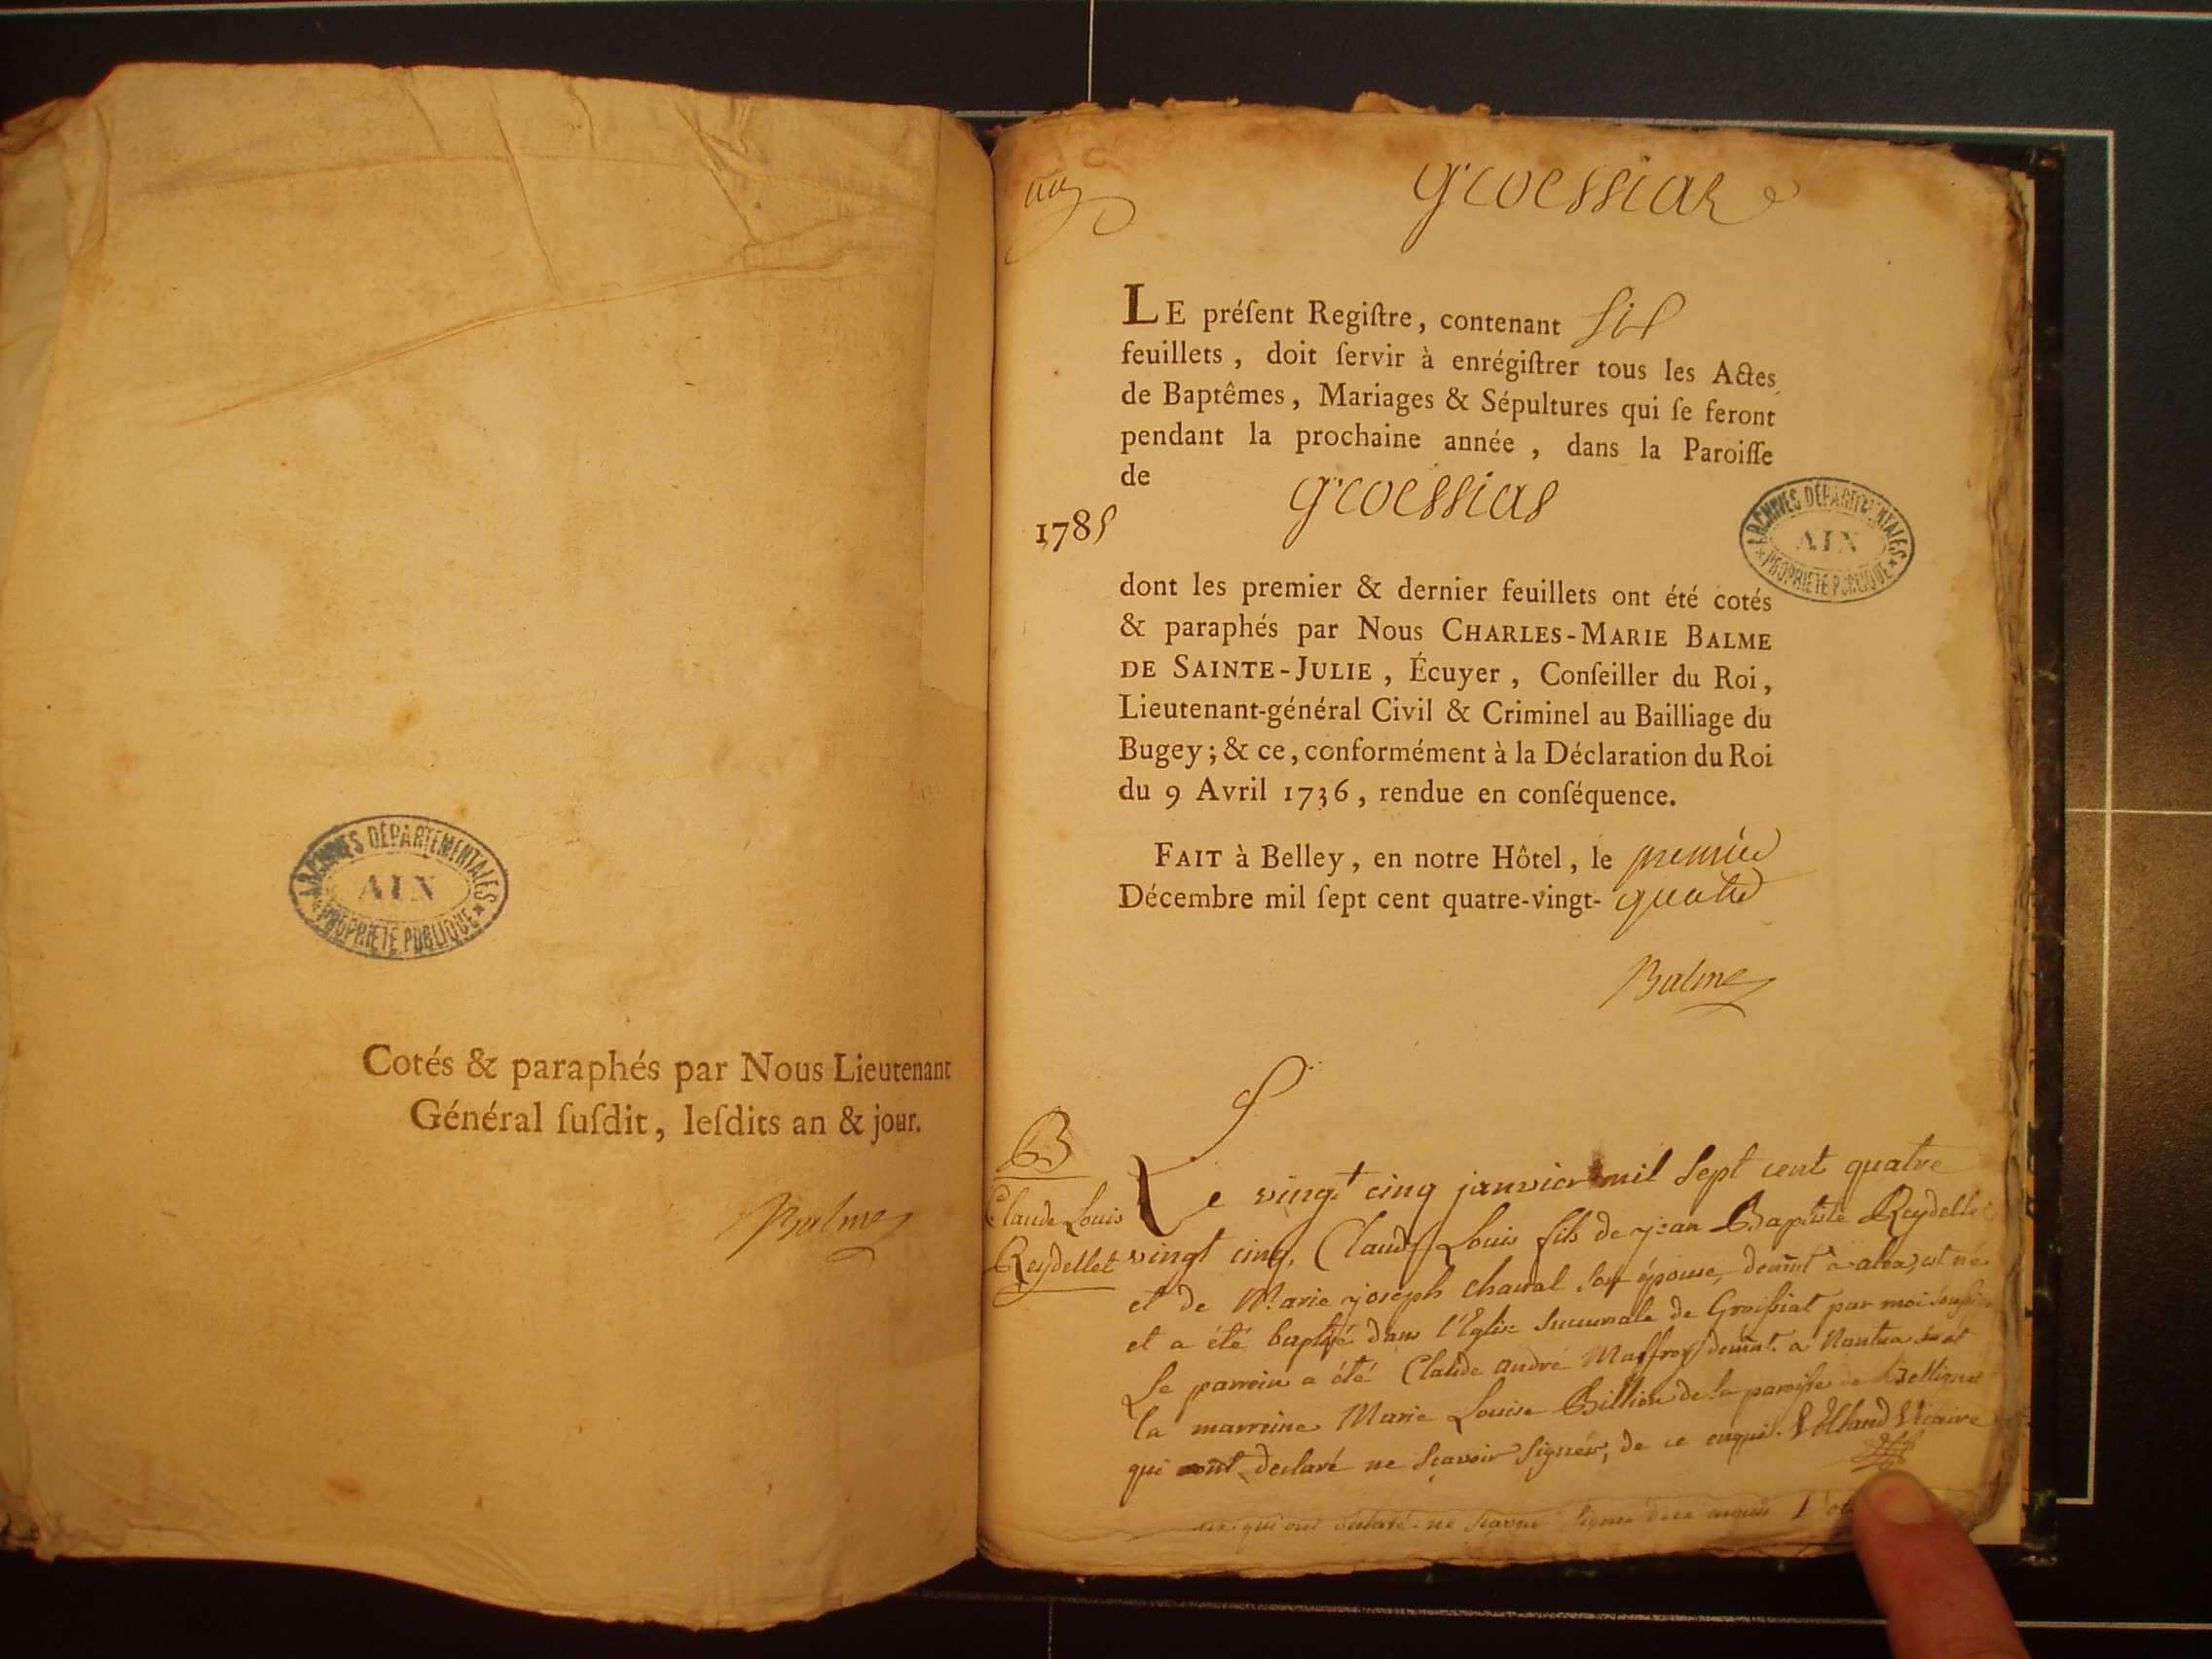 ARCHIVES DÉPARTEMENTALES
AIN
PROPRIÉTÉ PUBLIQUE
Cotés & paraphés par Nous Lieutenant
Général ſuſdit, leſdits an & jour.
Balme
groessiat
LE préſent Regiſtre, contenant six
feuillets, doit ſervir à enrégiſtrer tous les Actes
de Baptêmes, Mariages & Sépultures qui ſe feront
pendant la prochaine année, dans la Paroiſſe
de groessiat
1785
ARCHIVES DÉPARTEMENTALES
AIN
PROPRIÉTÉ PUBLIQUE
dont les premier & dernier feuillets ont été cotés
& paraphés par Nous CHARLES-MARIE BALME
DE SAINTE-JULIE, Écuyer, Conſeiller du Roi,
Lieutenant-général Civil & Criminel au Bailliage du
Bugey; & ce, conformément à la Déclaration du Roi
du 9 Avril 1736, rendue en conſéquence.
FAIT à Belley, en notre Hôtel, le premier
Décembre mil ſept cent quatre-vingt- quatre
Balme
B
Claude Louis
Reydellet
Le vingt cinq janvier mil sept cent quatre
vingt cinq, Claude Louis fils de jean Baptiste Reydellet
et de Marie joseph chaval son épouse, demt à est né
et a été baptisé dans l'Eglise succursale de Groissiat par moi
Le parrein a été Claude andré Maffroy demt. a Nantua et
la marreine Marie Louise Billion de la paroisse de Bellignat
qui ont declaré ne sçavoir signer, de ce enquis. Volland Vicaire
qui ont declaré ne sçavoir signer de ce enquis